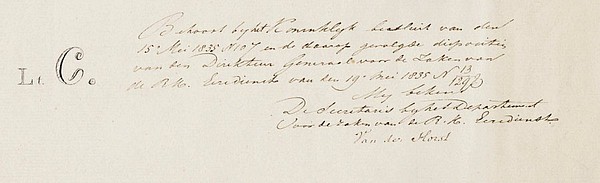 Lt. C.
Behoort by het Koninklyk besluit van den
15e Mei 1835 N 107 en de daarop gevolgde dispositien
van den Direkteur Generaal voor de Zaken van
de R. K. Eeredienst van den 19e Mei 1835 N 13
My bekend
De Secretaris by het Departement
voor de zaken van de R. K. Eeredienst
Van der Horst